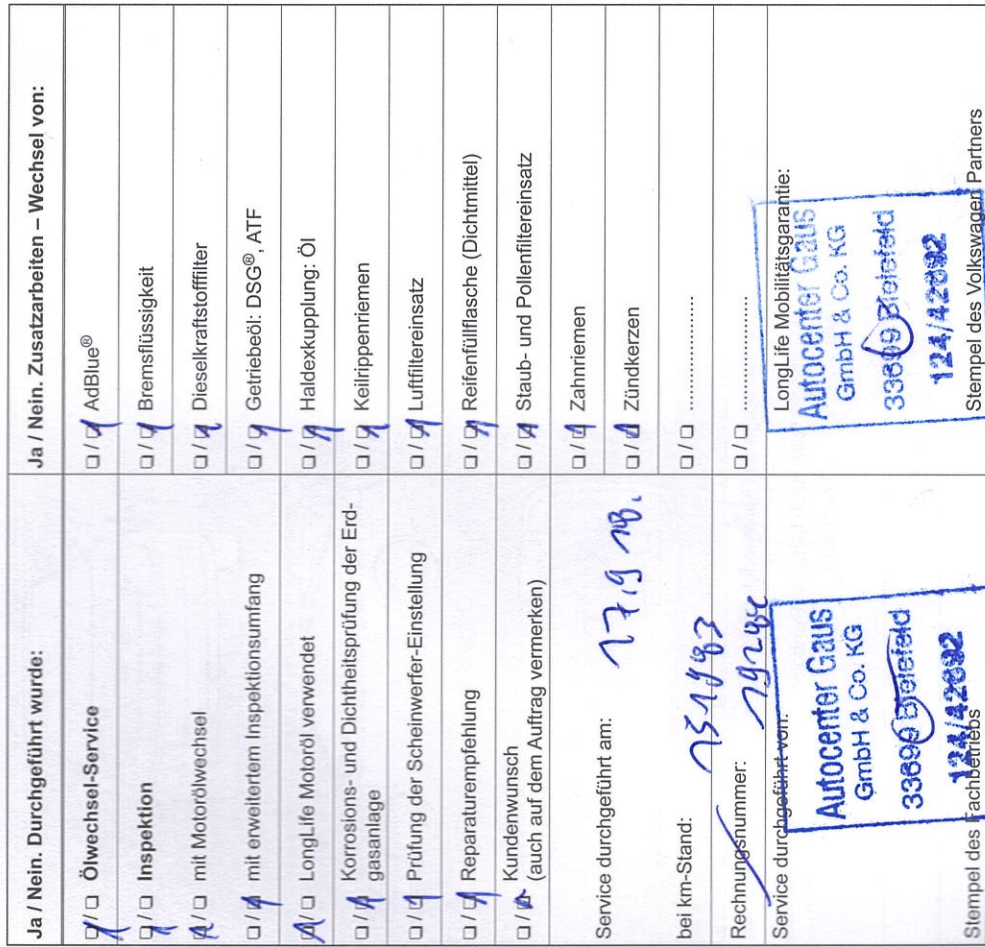 Ja / Nein. Durchgeführt wurde:
❏/❏ Ölwechsel-Service
❏/❏ Inspektion
❏/❏ mit Motorölwechsel
❏/❏ mit erweitertem Inspektionsumfang
❏/❏ LongLife Motoröl verwendet
❏/❏ Korrosions- und Dichtheitsprüfung der Erd-
gasanlage
❏/❏ Prüfung der Scheinwerfer-Einstellung
❏/❏ Reparaturempfehlung
❏/❏ Kundenwunsch
(auch auf dem Auftrag vermerken)
Service durchgeführt am: 17.9.18.
bei km-Stand:
Rechnungsnummer:
Service durchgeführt von:
Autocenter Gaus
GmbH & Co. KG
33699 Bielefeld
124/42692
Stempel des Fachbetriebs
Ja / Nein. Zusatzarbeiten – Wechsel von:
❏/❏ AdBlue®
❏/❏ Bremsflüssigkeit
❏/❏ Dieselkraftstofffilter
❏/❏ Getriebeöl: DSG®, ATF
❏/❏ Haldexkupplung: Öl
❏/❏ Keilrippenriemen
❏/❏ Luftfiltereinsatz
❏/❏ Reifenfüllflasche (Dichtmittel)
❏/❏ Staub- und Pollenfiltereinsatz
❏/❏ Zahnriemen
❏/❏ Zündkerzen
❏/❏ ........................
❏/❏ ........................
LongLife Mobilitätsgarantie:
Autocenter Gaus
GmbH & Co. KG
33699 Bielefeld
124/42692
Stempel des Volkswagen Partners